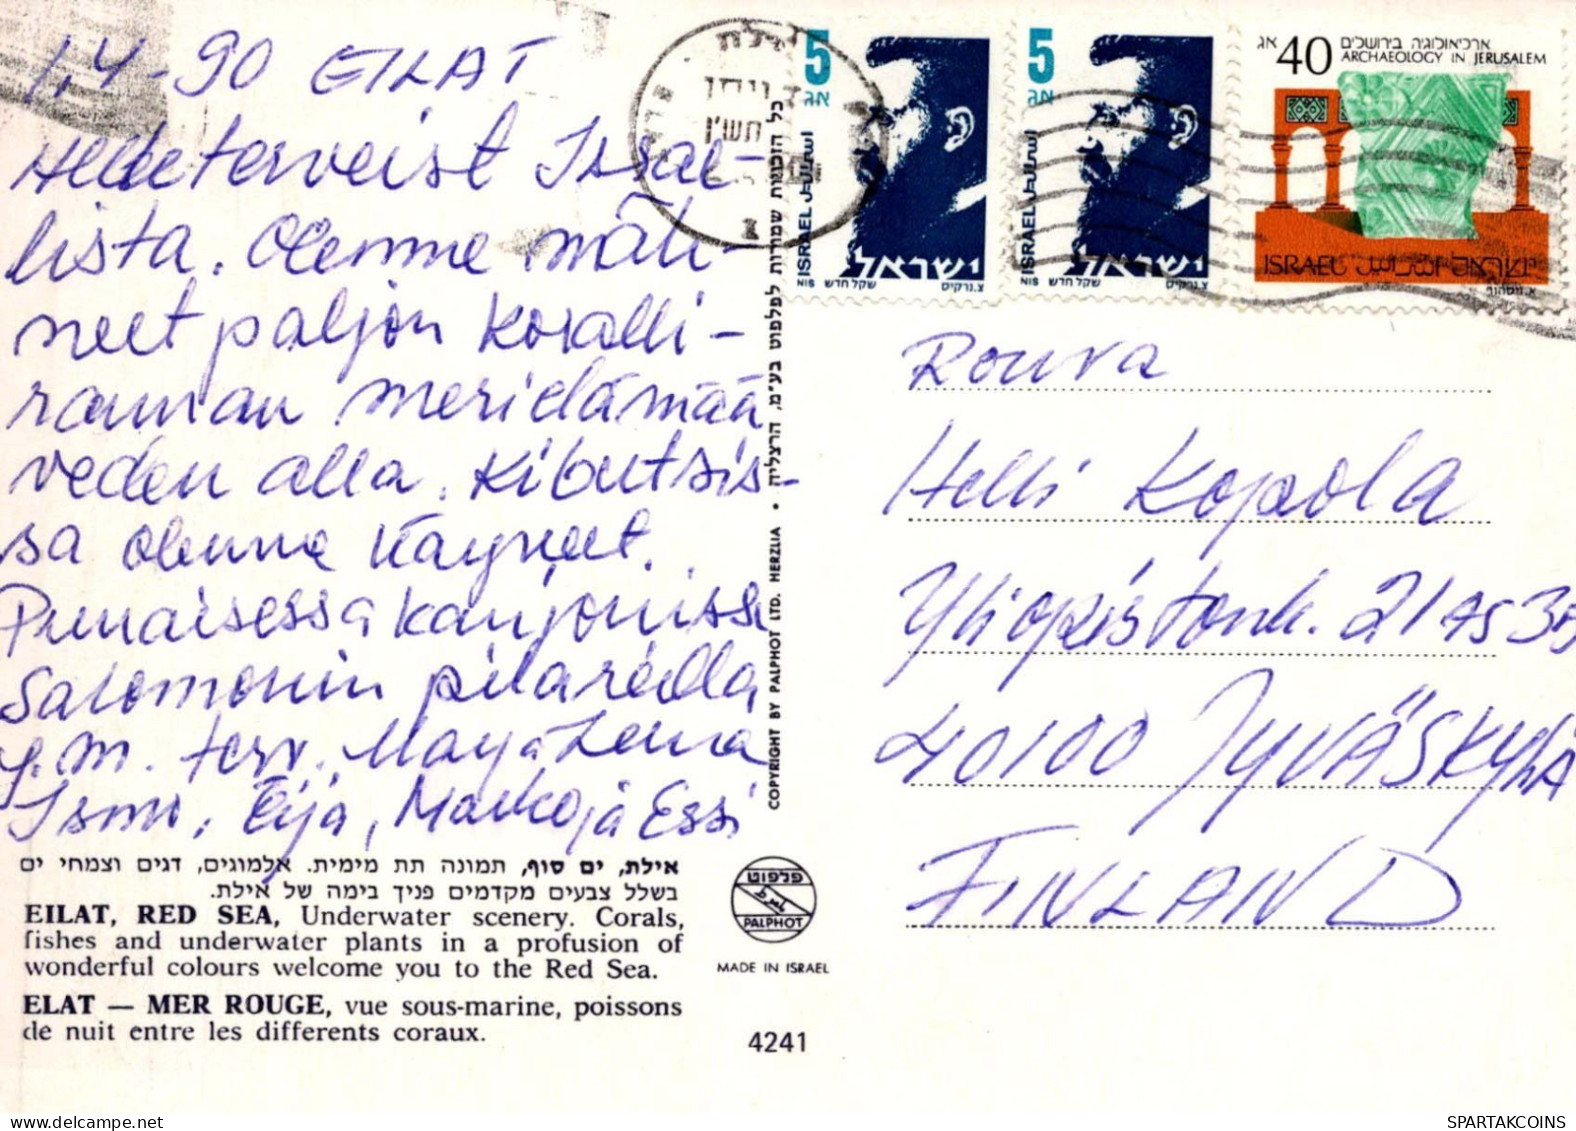 1.4-90 EILAT
Hedeterveist Israe-
lista. Olemme näh-
neet paljon koralli-
rannan merielämää
veden alla. Kibutsis-
sa olemme käyneet.
Punaisessa kanjonissa
Salomonin pilareilla
y.m. terv. Marja Leena
Ismo, Eija, Marko ja Essi
אילת, ים סוף, תמונה תת מימית. אלמוגים, דגים וצמחי ים
בשלל צבעים מקדמים פניך בימה של אילת.
EILAT, RED SEA, Underwater scenery. Corals,
fishes and underwater plants in a profusion of
wonderful colours welcome you to the Red Sea.
ELAT — MER ROUGE, vue sous-marine, poissons
de nuit entre les differents coraux.
COPYRIGHT BY PALPHOT LTD. HERZLIA • כל הזכויות שמורות לפלפוט בע״מ. הרצליה
פלפוט
PALPHOT
MADE IN ISRAEL
4241
אילת
תש"ן
5
אג
ISRAEL اسرائيل
ישראל
NIS שקל חדש צ. נרקיס
5
אג
ISRAEL اسرائيل
ישראל
NIS שקל חדש צ. נרקיס
40 אג
ארכיאולוגיה בירושלים
ARCHAEOLOGY IN JERUSALEM
ISRAEL اسرائيل ישראל
Rouva
Helli Kopola
Yliopistonk. 21 as 3B
40100 JYVÄSKYLÄ
FINLAND
SPARTAKCOINS